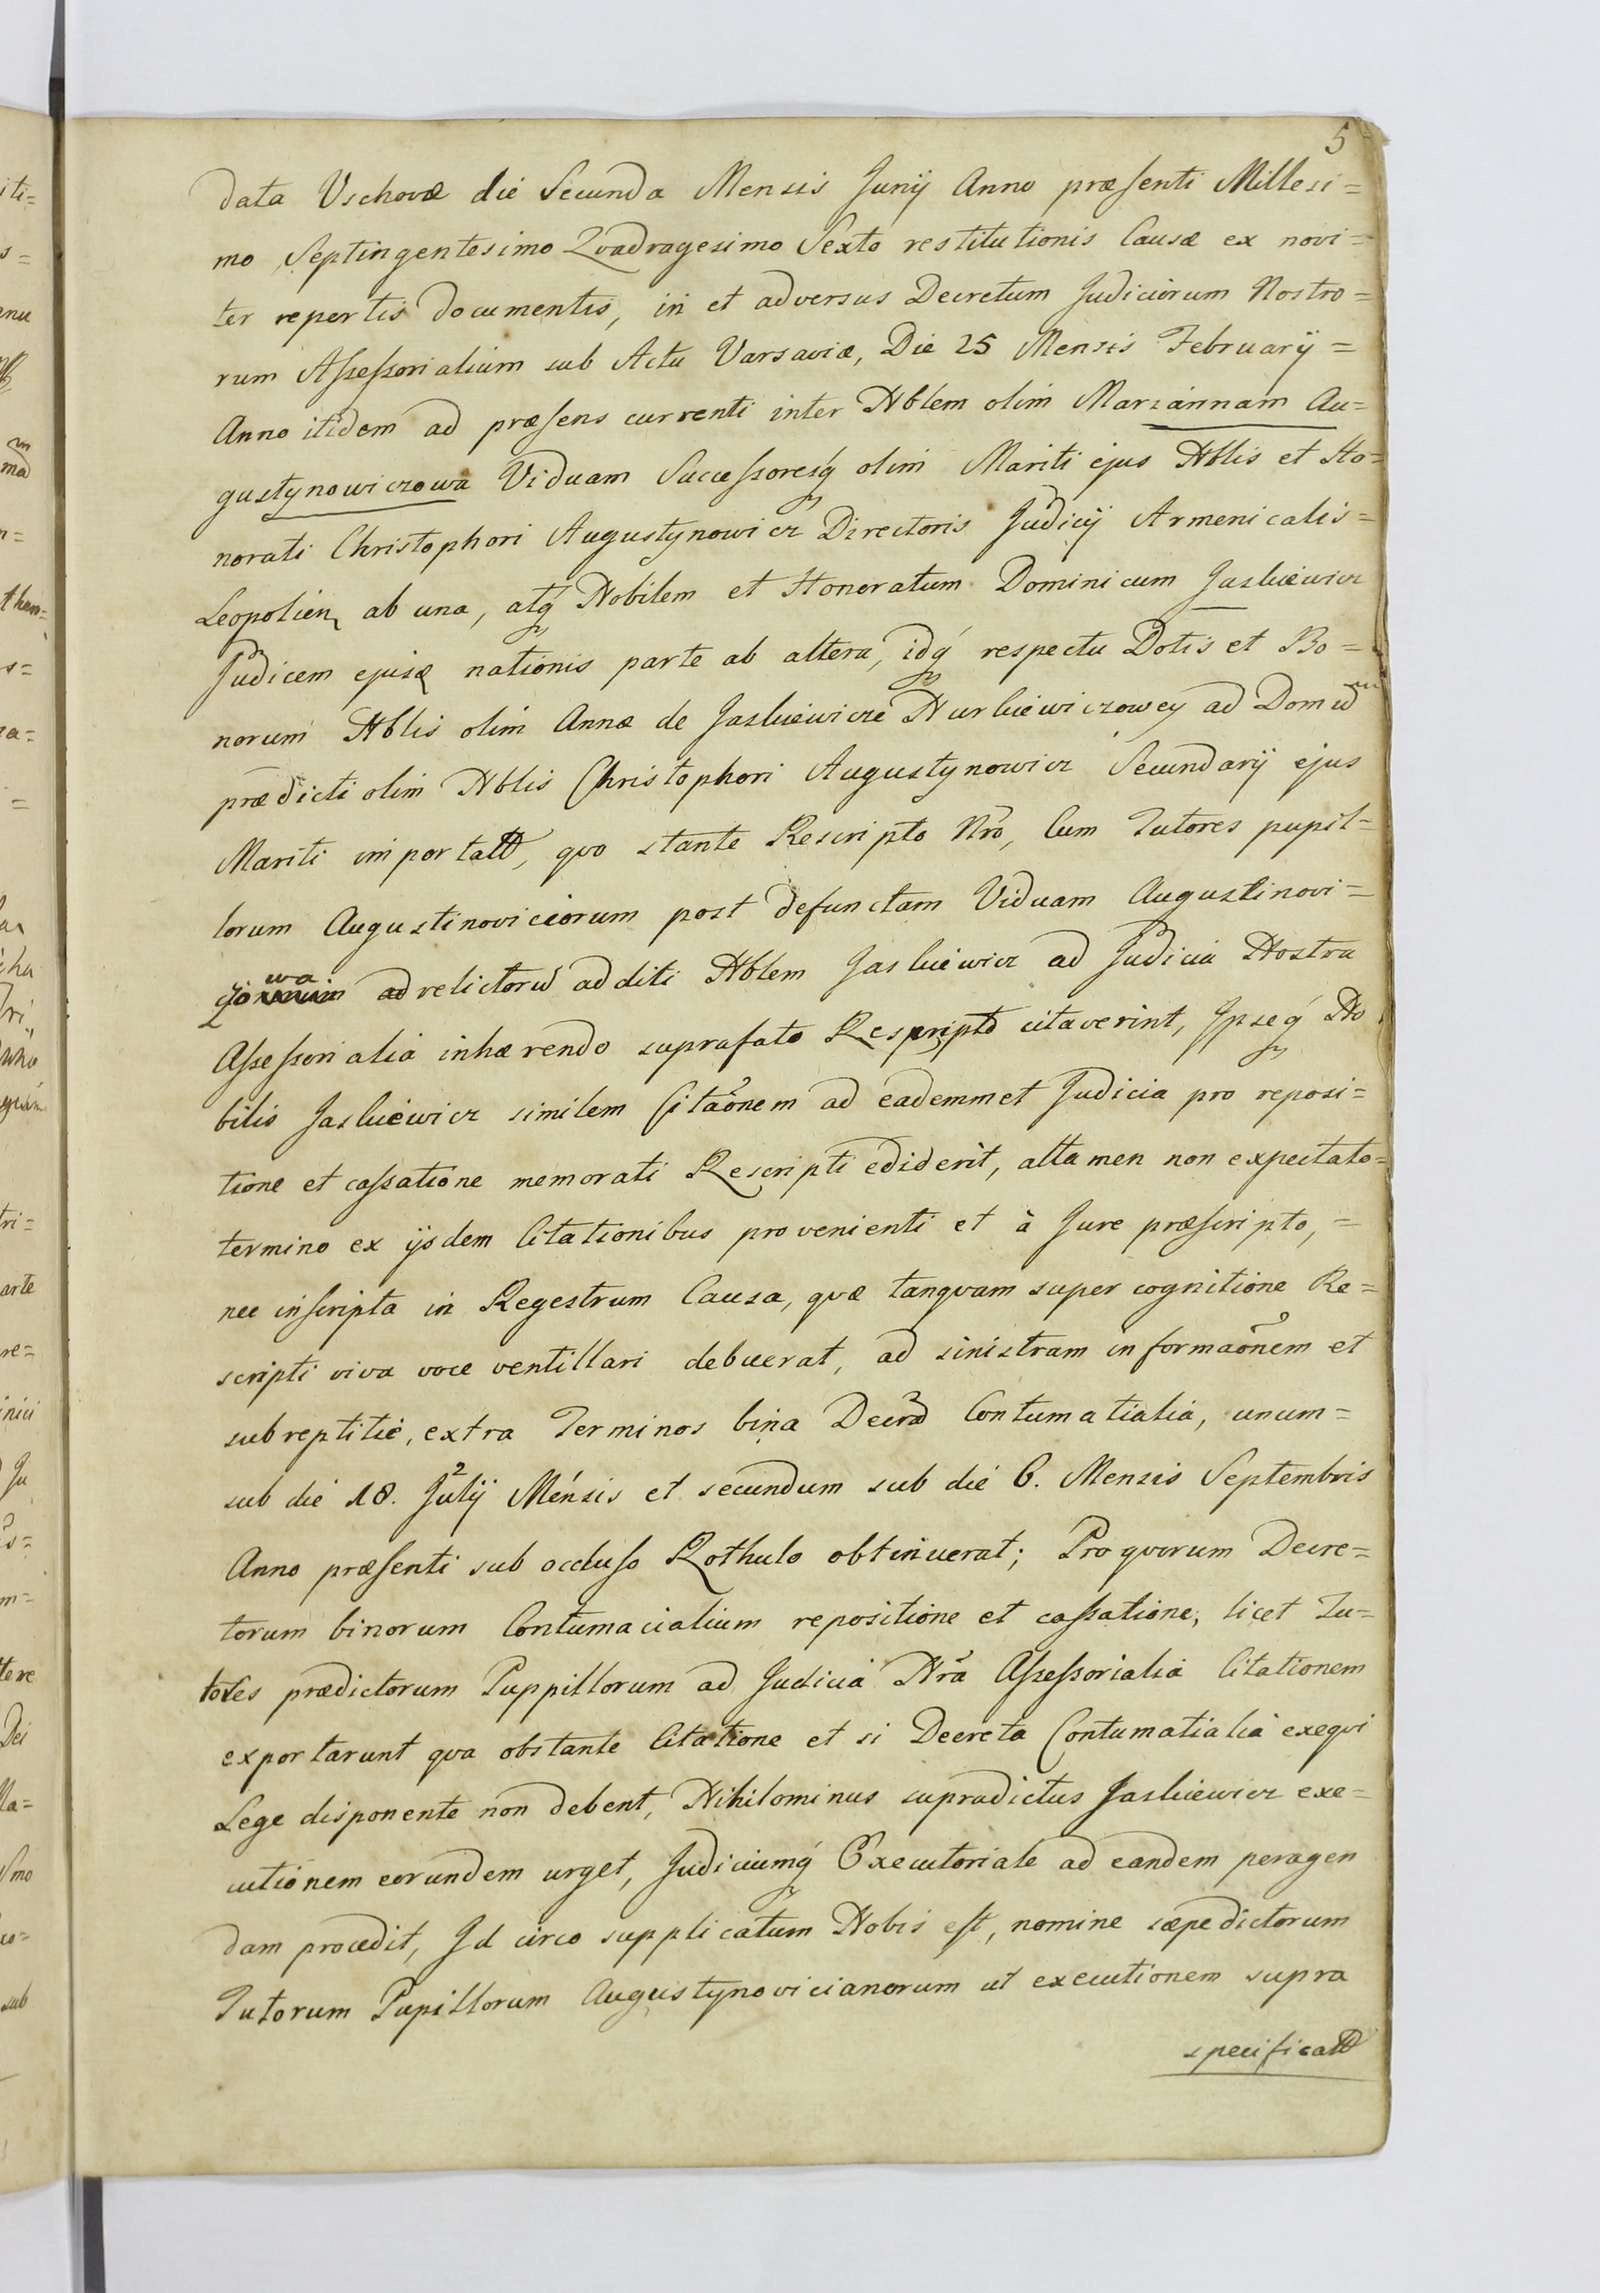 5
data Vschovæ die Secunda Mensis Junij Anno præsenti Millesi=
mo Septingentesimo Qvadragesimo Sexto restitutionis Causæ ex novi=
ter repertis documentis, in et adversus Decretum Judiciorum Nostro=
rum Assessorialium sub Actu Varsaviæ, Die 25 Mensis February=
Anno itidem ad præsens currenti inter Nblem olim Mariannam Au=
gustynowiczowa Viduam Successoresq́ olim Mariti ejus Nblis et Ho=
norati Christophori Augustynowicz Directoris Judicij Armenicalis=
Leopolien, ab una, atq́ Nobilem et Honoratum Dominicum Jaskiewicz
Judicem ejusæ nationis parte ab altera, idq́ respectu Dotis et Bo=
norum Nblis olim Annæ de Jaskiewicze Nurkiewiczowey ad Domu
prædicti olim Nblis Christophori Augustynowicz Secundarij ejus
Mariti importatt, qvo stante Rescripto Nro, Cum Tutores pupil=
lorum Augustinoviciorum post defunctam Viduam Augustinovi=
wa
ad relictoru additi Nblem Jaskiewicz ad Judicia Nostra
Assessorialia inhærendo suprafato Rescripto citaverint, Ipseq́ No
bilis Jaskiewicz similem Citaonem ad eademmet Judicia pro reposi=
tione et cassatione memorati Rescripti ediderit, attamen non expectato=
termino ex ijsdem Citationibus provenienti et à Jure præscripto,=
nec inscripta in Regestrum Causa, qvæ tanqvam super cognitione Re=
scripti viva voce ventillari debuerat, ad sinistram informaonem et
subreptitie, extra Terminos bina Decra Contumatialia, unum=
sub die 18. Julij Mensis et secundum sub die 6. Mensis Septembris
Anno præsenti sub occluso Rothulo obtinuerat; Pro qvorum Decre=
torum binorum Contumacialium repositione et cassatione, licet Tu=
tores prædictorum Puppillorum ad Judicia Nra Assessorialia Citationem
exportarunt qva obstante Citatione et si Decreta Contumatialia exeqvi
Lege disponente non debent, Nihilominus supradictus Jaskiewicz exe=
cutionem eorundem urget, Judiciumq́ Executoriale ad eandem peragen
dam procedit, Id circo supplicatum Nobis est, nomine sæpedictorum
Tutorum Pupillorum Augustynovicianorum ut executionem supra
specificatt